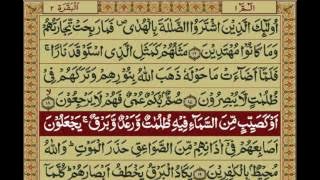 الٓمّٓ ١ البقرة ٢
اُولٰٓئِكَ الَّذِيْنَ اشْتَرَوُا الضَّلٰلَةَ بِالْهُدٰى ۪ فَمَا رَبِحَتْ تِّجَارَتُهُمْ
وَمَا كَانُوْا مُهْتَدِيْنَ ۝ مَثَلُهُمْ كَمَثَلِ الَّذِى اسْتَوْقَدَ نَارًا ۚ
فَلَمَّآ اَضَآءَتْ مَا حَوْلَهٗ ذَهَبَ اللّٰهُ بِنُوْرِهِمْ وَتَرَكَهُمْ فِىْ
ظُلُمٰتٍ لَّا يُبْصِرُوْنَ ۝ صُمٌّۢ بُكْمٌ عُمْىٌ فَهُمْ لَا يَرْجِعُوْنَ ۝
اَوْ كَصَيِّبٍ مِّنَ السَّمَآءِ فِيْهِ ظُلُمٰتٌ وَّرَعْدٌ وَّبَرْقٌ ۚ يَجْعَلُوْنَ
اَصَابِعَهُمْ فِىْٓ اٰذَانِهِمْ مِّنَ الصَّوَاعِقِ حَذَرَ الْمَوْتِ ؕ وَاللّٰهُ
يَكَادُ الْبَرْقُ يَخْطَفُ اَبْصَارَهُمْ ؕ كُلَّمَآ